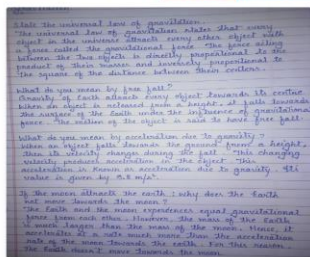 State the universal law of gravitation.
The universal law of gravitation states that every
object in the universe attracts every other object with
a force called the gravitational force. The force acting
between the two objects is directly proportional to the
product of their masses and inversely proportional to
the square of the distance between their centers.
What do you mean by free fall?
Gravity of Earth attracts every object towards its centre.
When an object is released from a height, it falls towards
the surface of the Earth under the influence of gravitational
force. The motion of the object is said to have free fall.
What do you mean by acceleration due to gravity?
When an object falls towards the ground from a height,
then its velocity changes during the fall. This changing
velocity produces acceleration in the object. This
acceleration is known as acceleration due to gravity. Its
value is given by 9.8 m/s².
If the moon attracts the earth, why does the Earth
not move towards the moon?
The Earth and the moon experiences equal gravitational
force from each other. However, the mass of the Earth
is much larger than the mass of the moon. Hence, it
accelerates at a rate much more than the acceleration
rate of the moon towards the earth. For this reason,
the Earth doesn't move towards the moon